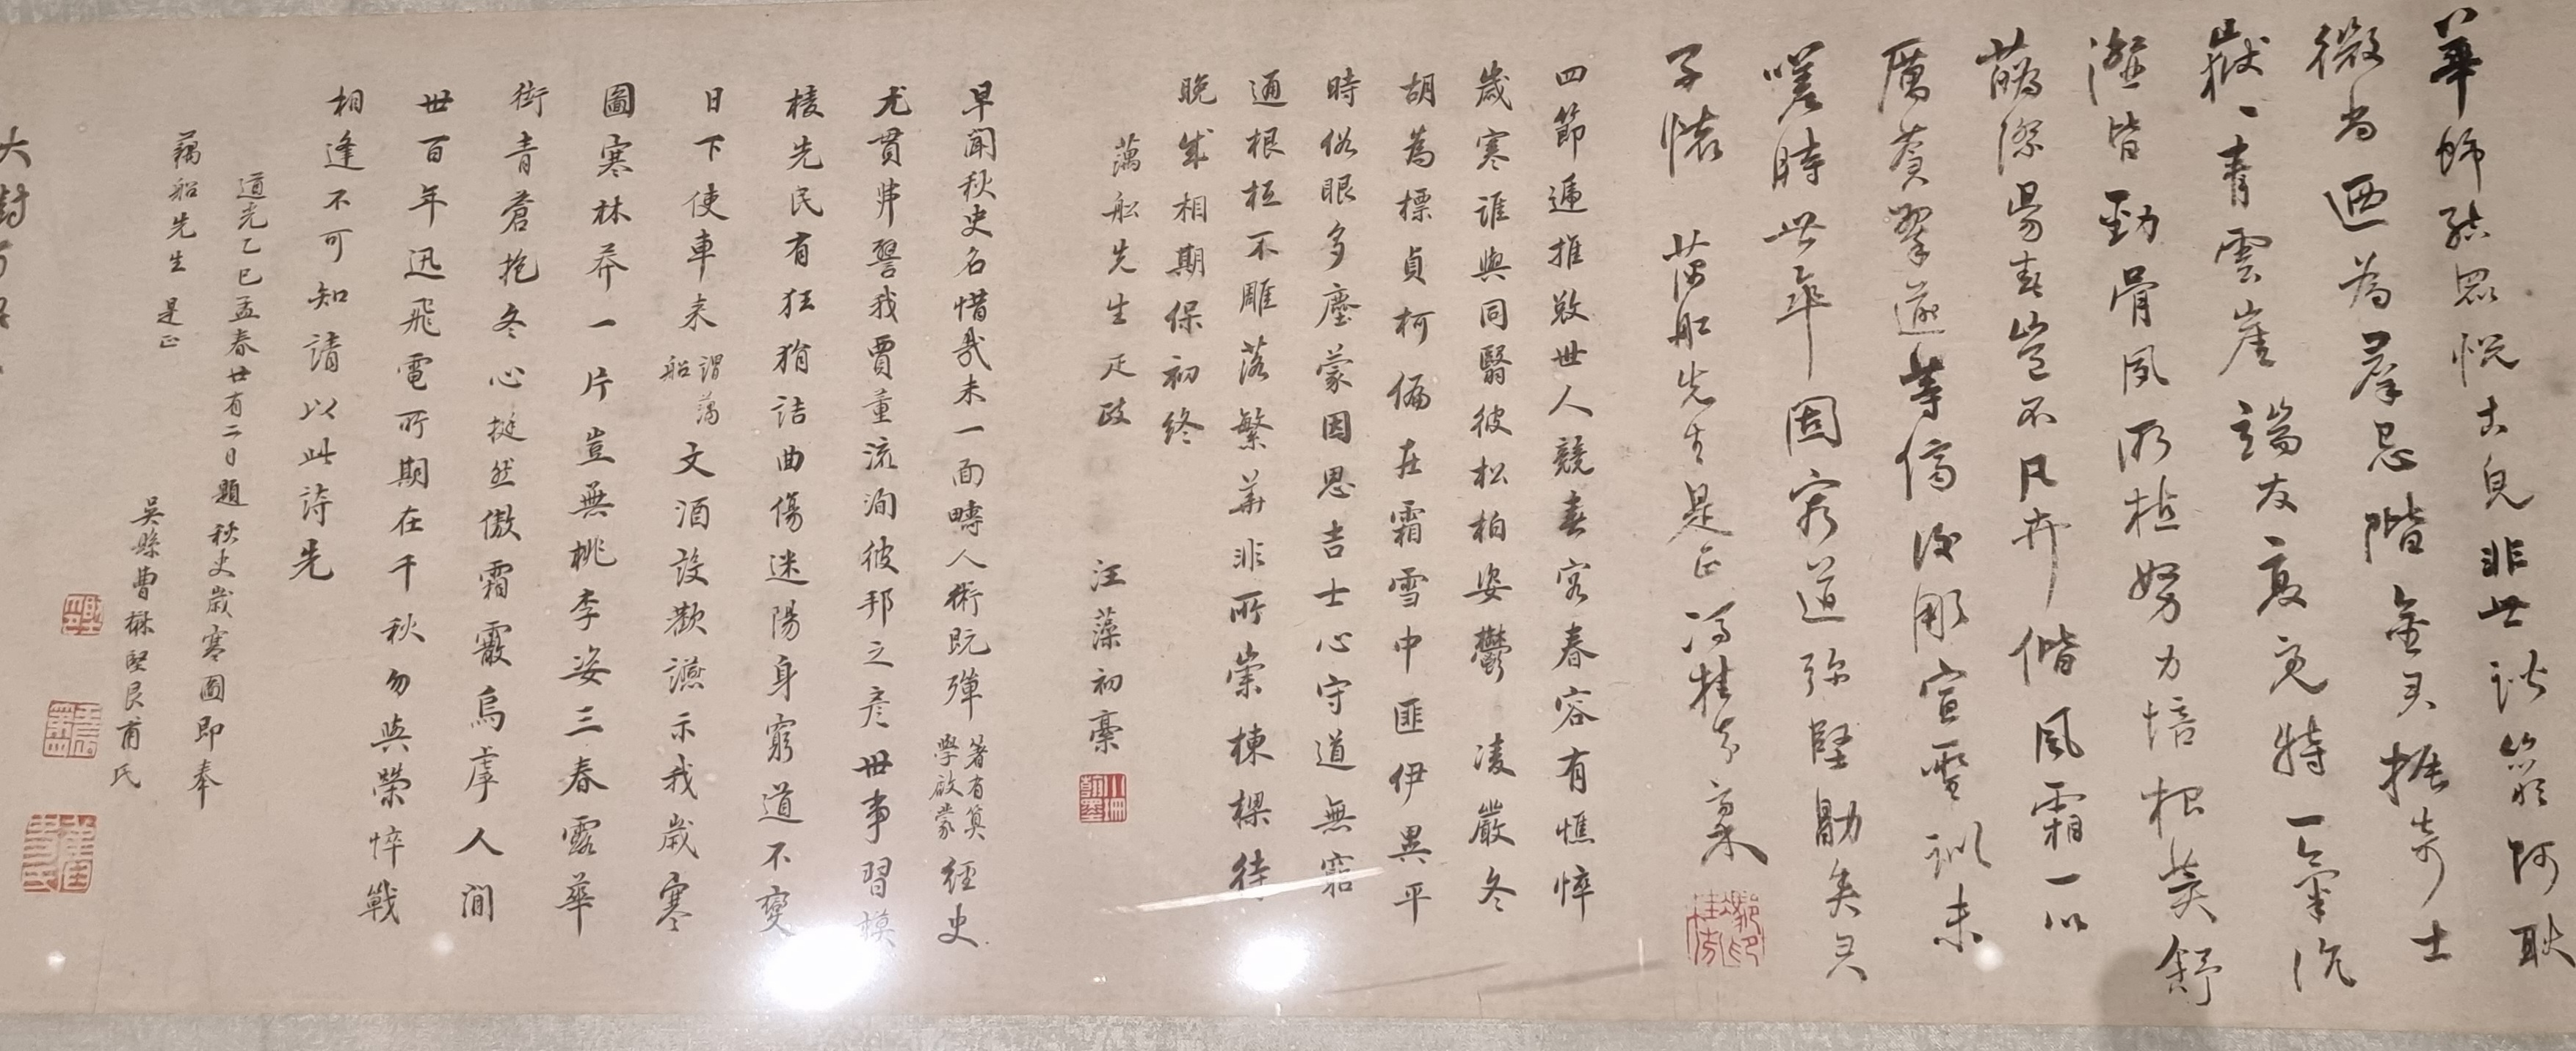 華飾終眾悅古皃非世諧篛阿耿
微尚迺為羣忌階金君振奇士
嶽〻青雲崖端友夏亮特一氣沆
瀣皆勁骨夙所植努力培根荄舒
蘤際易春豈不凡卉偕風霜一以
厲蒼翠遂等儕後彫宣聖訓未
嘆時世乖固窮道彌堅勖矣君
子懷 蕅舩先生是正 馮桂芬稾
四節遞推敓世人競春容春容有憔悴
歲寒誰與同翳彼松柏姿鬱凌嚴冬
胡為標貞柯偏在霜雪中匪伊異平
時俗眼多塵蒙因思吉士心守道無窮
通根柢不雕落繁華非所崇棟樑待
晚歲相期保初終
蕅舩先生疋政 汪藻初稾
早聞秋史名惜哉未一面疇人術既殫 著有算學啟蒙 經史
尤貫弗譬我賈董流洵彼邦之彥世事習模
棱先民有狂狷詰曲傷迷陽身窮道不變
日下使車來 謂蕅船 文酒設歡讌示我歲寒
圖寒林莽一片豈無桃李姿三春露華
衒青蒼抱冬心挺然傲霜霰烏虖人間
世百年迅飛電所期在千秋勿與榮悴戰
相逢不可知請以此詩先
道光乙巳孟春廿有二日題秋史歲寒圖即奉
蕅船先生是正
吳縣曹楙堅艮甫氏